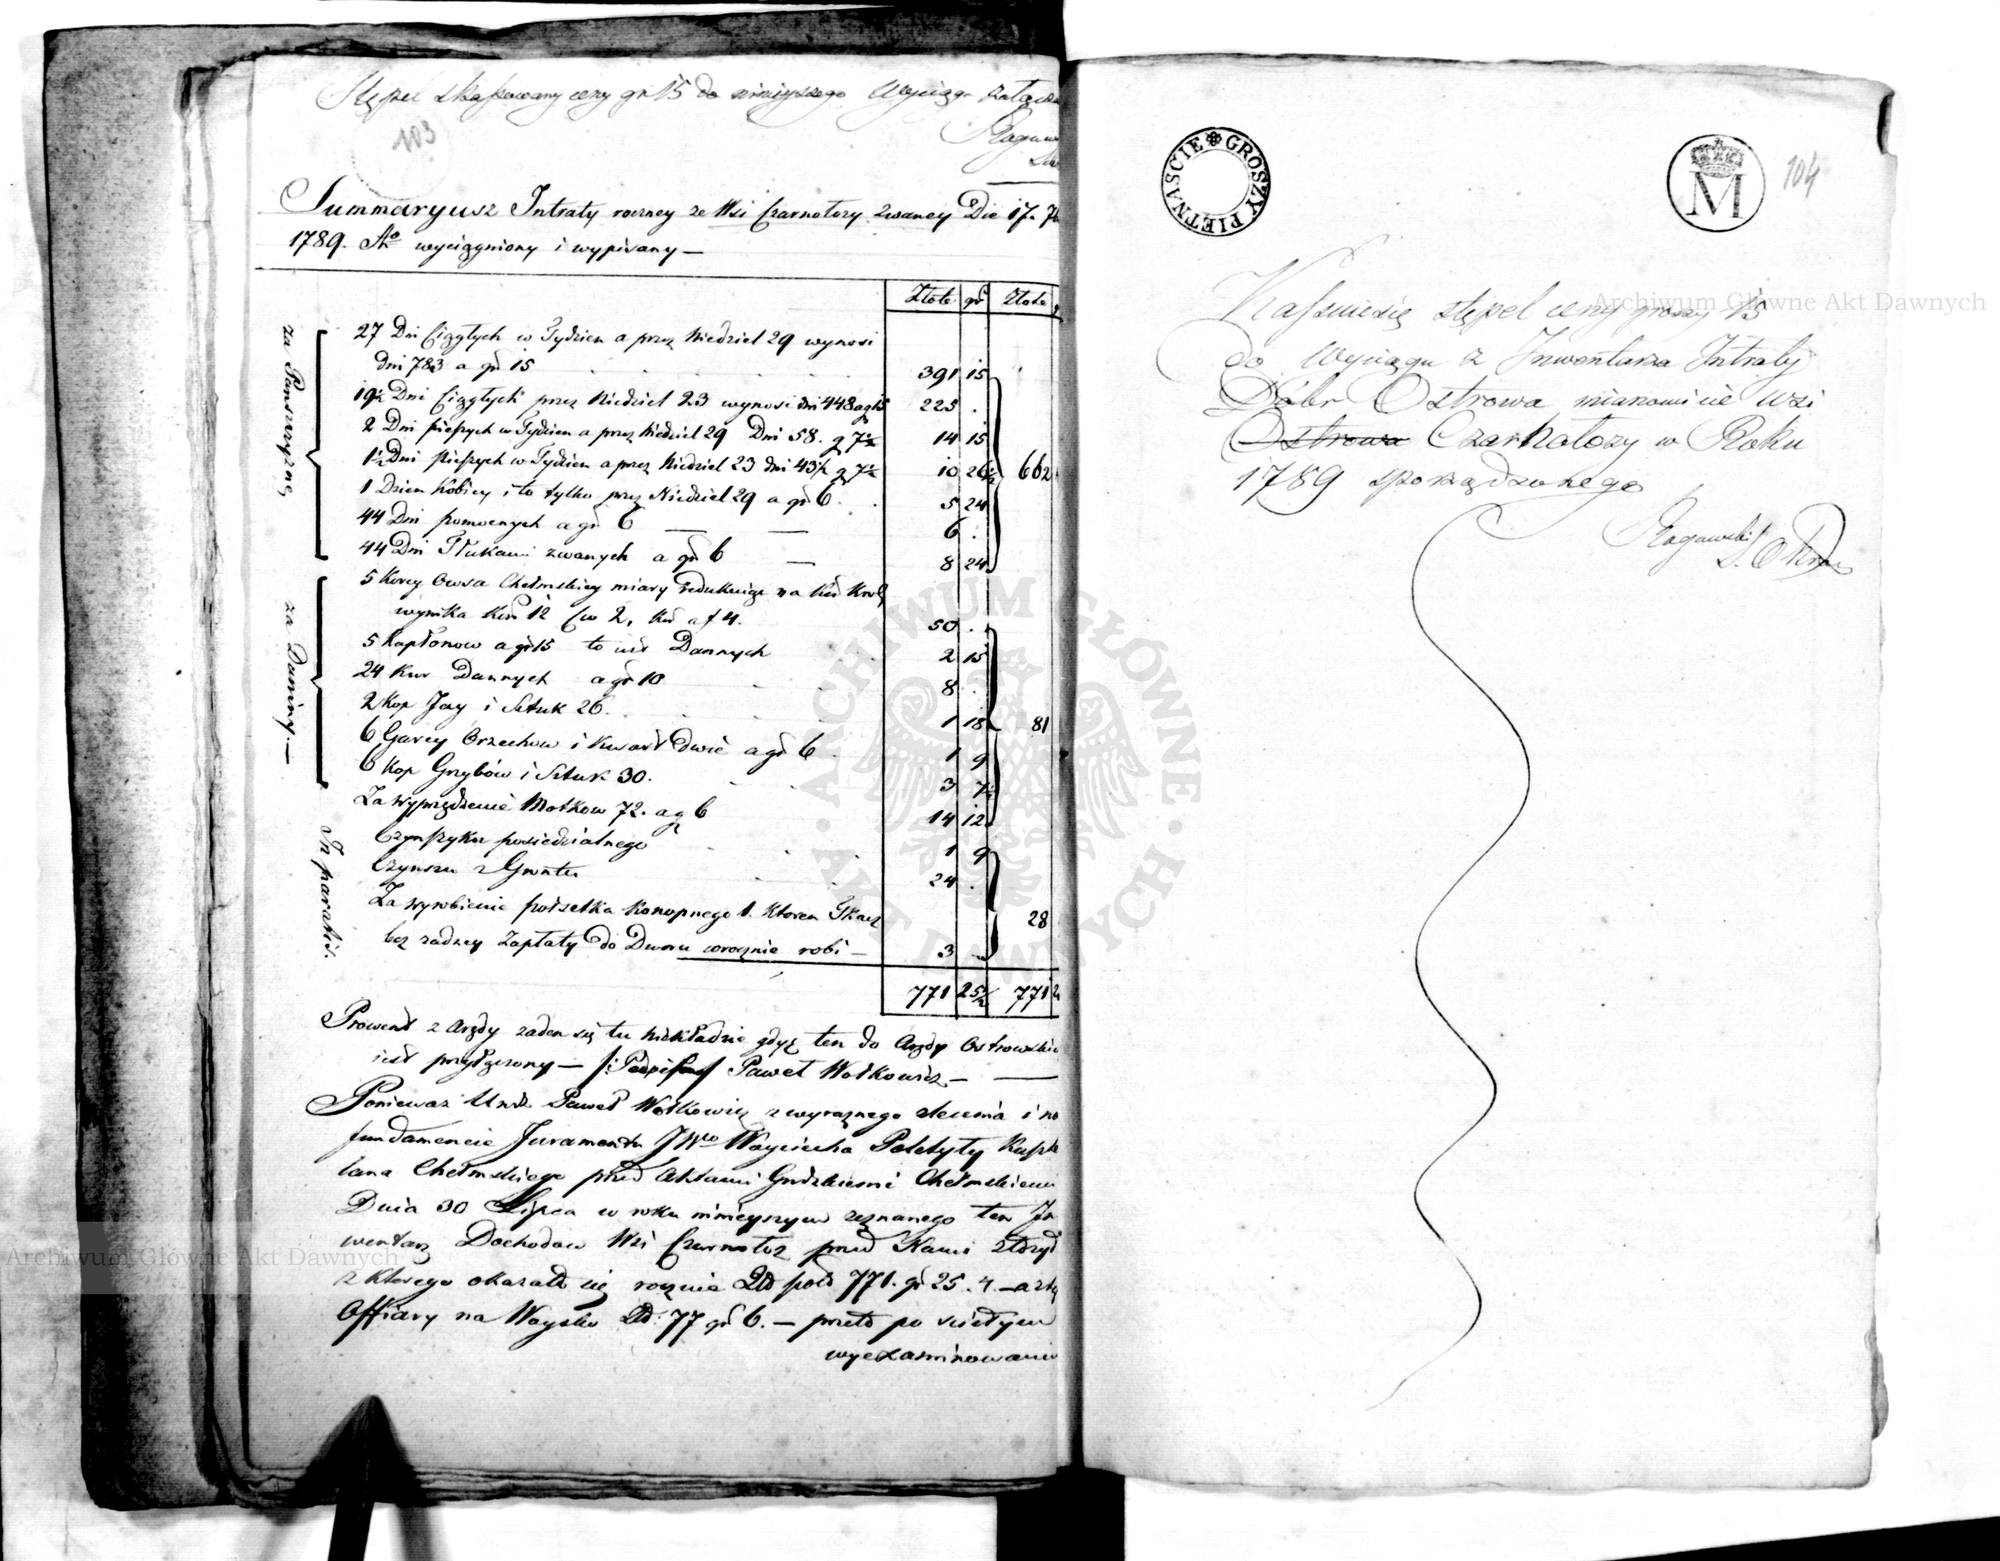 Stępel skasowany ceny gr 15 do ninieyszego Wyciągu
103
Summaryusz Intraty roczney ze Wsi Czarnołozy zwaney Die 17.
1789. Ao wyciągniony i wypisany —
Złote gr Złote
za Pańszczyznę,
27 Dni Ciągłych w Tydzien a przez Niedziel 29 wynosi
dni 783 a gr 15 391 15
19½ Dni Ciągłych przez Niedziel 23 wynosi dni 448 a gr 15 223 .
2 Dni pieszych w Tydzien a przez Niedziel 29 Dni 58. g 7½ 14 15
1½ Dni pieszych w Tydzien a przez Niedziel 23 dni 43½ g 7½ 10 26½ 662
1 Dzien Kobiecy i to tylko przez Niedziel 29 a gr 6. 5 24
44 Dni pomocnych a gr 6 — — 6 .
44 Dni Tłukami zwanych a gr 6 — 8 24
za Daniny.—
5 Korcy Owsa Chełmskiey miary redukuiąc na
wynika Kor 12 50 .
5 Kapłonow a gr 15 to iest Dannych 2 15
24 Kur Dannych a gr 10 8 .
2 Kop Jay i Sztuk 26. 1 18 81
6 Garcy Orzechow i Kwart dwie a gr 6 1 9
6 Kop Grzybów i Sztuk 30. 3 7½
Za wyprzędzenie Motkow 72. a g 6 14 12
Czynszyku posiedzialnego 1 9
Czynszu z Gruntu 24 .
Za wyrobienie połsetka konopnego 1. ktoren Tkacz 28
bez zadney zapłaty do Dworu corocznie robi — 3 .
771 25½ 771
Prowent z Arędy zaden się tu niekładzie gdyz ten do Arędy
iest przyłączony — /: Podpisany Paweł Wołkowicz — —
Poniewaz Paweł Wołkowicz z wyraznego zlecenia i na
fundamencie Juramentu JWo Woyciecha Poletyły
lana Chełmskiego przed Aktami Grodzkiemi
Dnia 30 Lipca w roku ninieyszym zeznanego ten In
wentarz Dochodow Wsi Czarnołoz przed Nami złozył
z ktorego okazało się rocznie Zło pols 771. gr 25. 4. —
Offiary na Woysko Zło: 77 gr 6. — przeto po scisłym
wyexaminowaniu
GROSZY PIETNASCIE
M
104
Kassuie się stępel ceny groszy 15
do Wyciągu z Inwentarza Intraty
Dobr Ostrowa mianowicie Wsi
Ostrowa Czarnołozy w Roku
1789 sporządzonego
Rogawski
Archiwum Główne Akt Dawnych
Archiwum Główne Akt Dawnych
ARCHIWUM GŁÓWNE AKT DAWNYCH